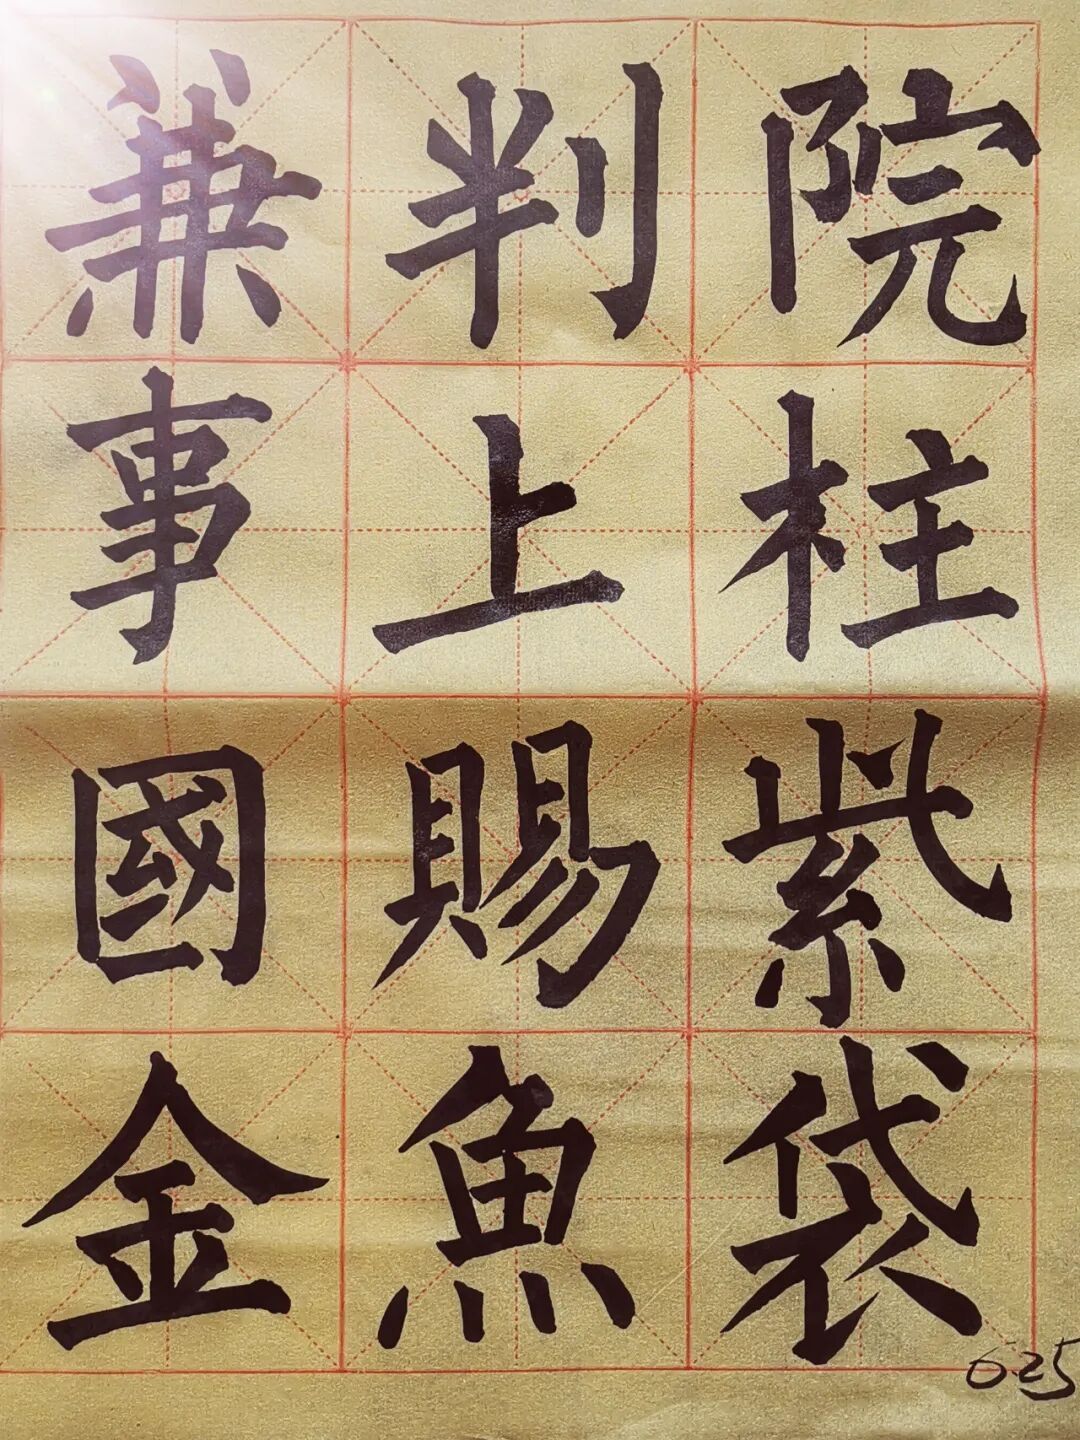 兼判院
事上柱
國賜紫
金魚袋